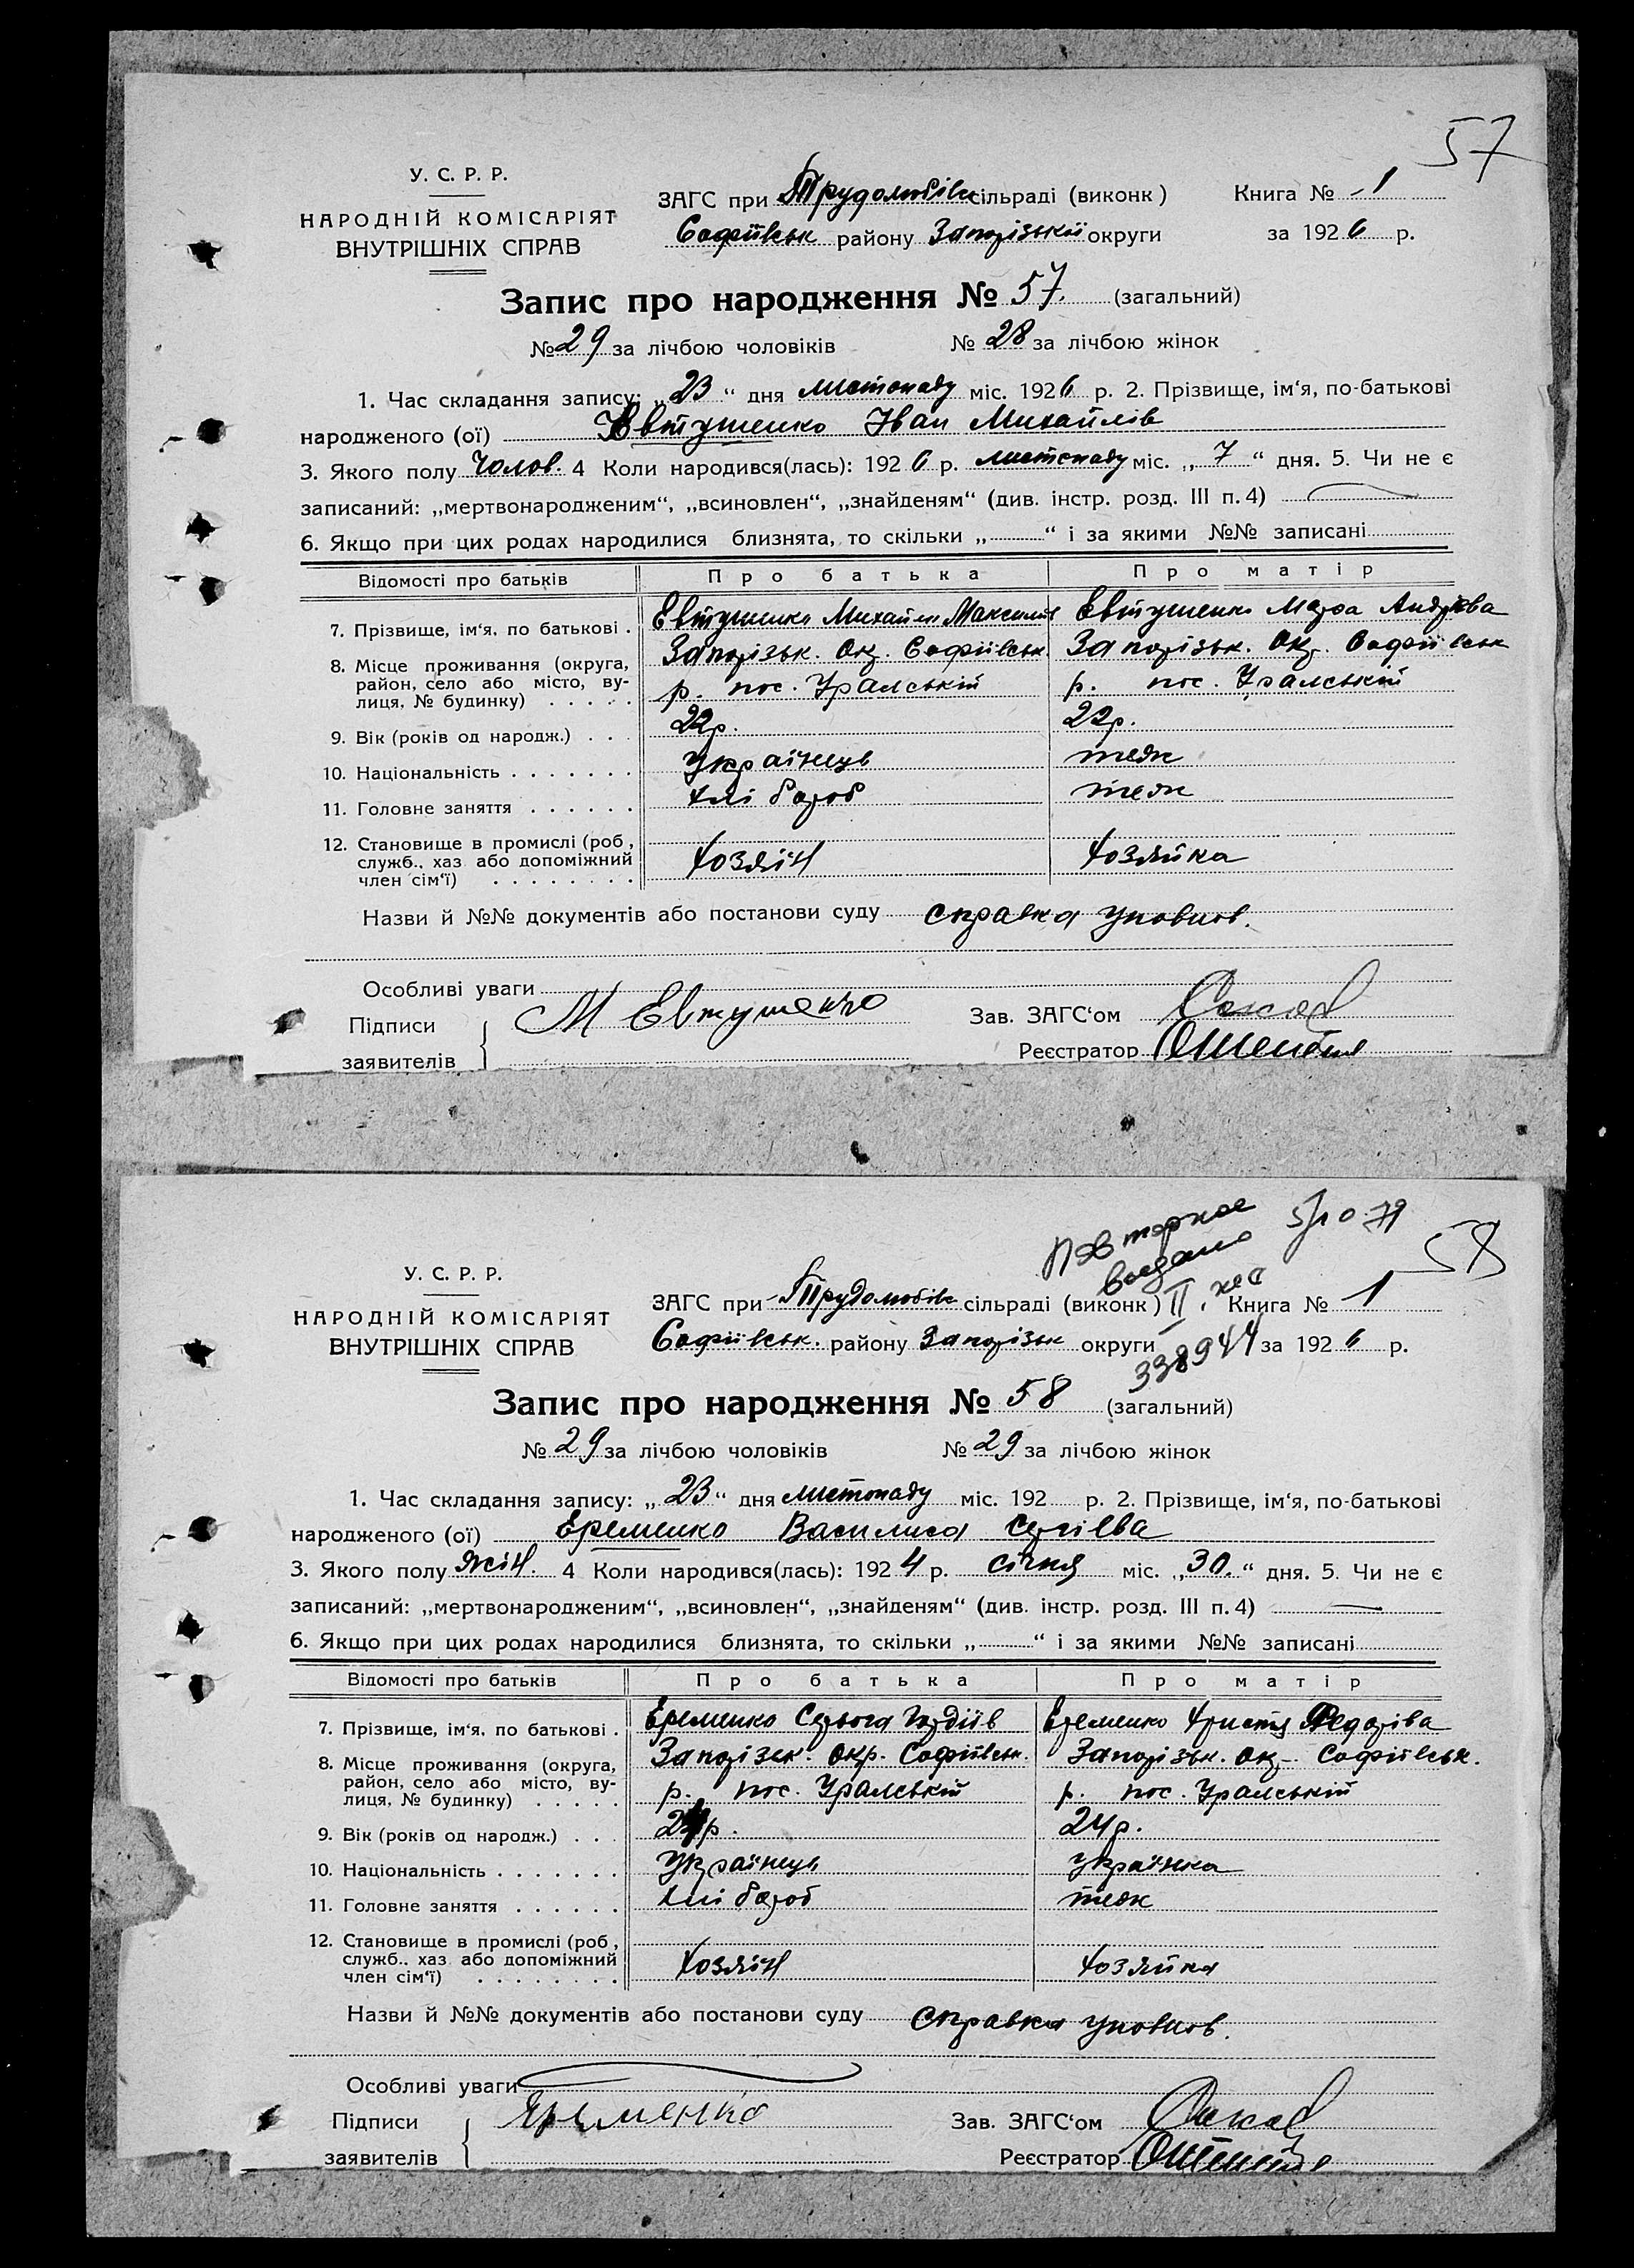 57
У. С. Р. Р.
НАРОДНІЙ КОМІСАРІЯТ
ВНУТРІШНІХ СПРАВ
ЗАГС при Трудолюбівк сільраді (виконк) Книга № 1
Софіївськ району Запорізькій округи за 1926 р.
Запис про народження № 57. (загальний)
№ 29 за лічбою чоловіків № 28 за лічбою жінок
1. Час складання запису: „ 23 “ дня листопаду міс. 1926 р. 2. Прізвище, ім‘я, по-батькові
народженого (ої) Євтушенко Іван Михайлів
3. Якого полу Чолов. 4 Коли народився(лась): 1926 р. листопаду міс. „ 7 “ дня. 5. Чи не є
записаний: „мертвонародженим“, „всиновлен“, „знайденям“ (див. інстр. розд. III п. 4)
6. Якщо при цих родах народилися близнята, то скільки „ “ і за якими №№ записані
Відомості про батьків Про батька Про матір
7. Прізвище, ім‘я, по батькові . Євтушенко Михайло Максимів Євтушенко Марфа Андрієва
8. Місце проживання (округа, район, село або місто, вулиця, № будинку) Запорізьк. Окр. Софіївськ. Запорізьк. Окр. Софіївськ
р. пос. Уральській р. пос. Уральській
9. Вік (років од народж.) . . . 22р. 22р.
10. Національність . . . . . . . Українець теж
11. Головне заняття . . . . . . Хлібороб теж
12. Становище в промислі (роб, служб.. хаз або допоміжний член сім‘ї) . . . . . . . . Хозяїн Хозяйка
Назви й №№ документів або постанови суду справка уповнов.
Особливі уваги
Підписи М Евтушенко Зав. ЗАГС‘ом
заявителів Реєстратор
Повторное 5/10 79
выдано 58
II
У. С. Р. Р.
НАРОДНІЙ КОМІСАРІЯТ
ВНУТРІШНІХ СПРАВ
ЗАГС при Трудолюбівк сільраді (виконк) Книга № 1
Софіївськ. району Запорізьк округи 338944 за 1926 р.
Запис про народження № 58 (загальний)
№ 29 за лічбою чоловіків № 29 за лічбою жінок
1. Час складання запису: „ 23 “ дня листопаду міс. 192 р. 2. Прізвище, ім‘я, по-батькові
народженого (ої) Єременко Василиса Сергієва
3. Якого полу жін. 4 Коли народився(лась): 1924 р. січня міс. „ 30. “ дня. 5. Чи не є
записаний: „мертвонародженим“, „всиновлен“, „знайденям“ (див. інстр. розд. III п. 4)
6. Якщо при цих родах народилися близнята, то скільки „ “ і за якими №№ записані
Відомості про батьків Про батька Про матір
7. Прізвище, ім‘я, по батькові . Єременко Серьога Гордіїв Єременко Христя Федорівa
8. Місце проживання (округа, район, село або місто, вулиця, № будинку) . . . . . Запорізьк. Окр. Софіївськ. Запорізьк. Окр. Софіївськ.
р. пос. Уральській р. пос. Уральській
9. Вік (років од народж.) . . . 24р.
10. Національність . . . . . . . Українець українка
11. Головне заняття . . . . . . Хлібороб теж
12. Становище в промислі (роб, служб.. хаз або допоміжний член сім‘ї) . . . . . . . . Хозяїн Хозяйка
Назви й №№ документів або постанови суду справка уповнов.
Особливі уваги
Підписи Яременко Зав. ЗАГС‘ом
заявителів Реєстратор